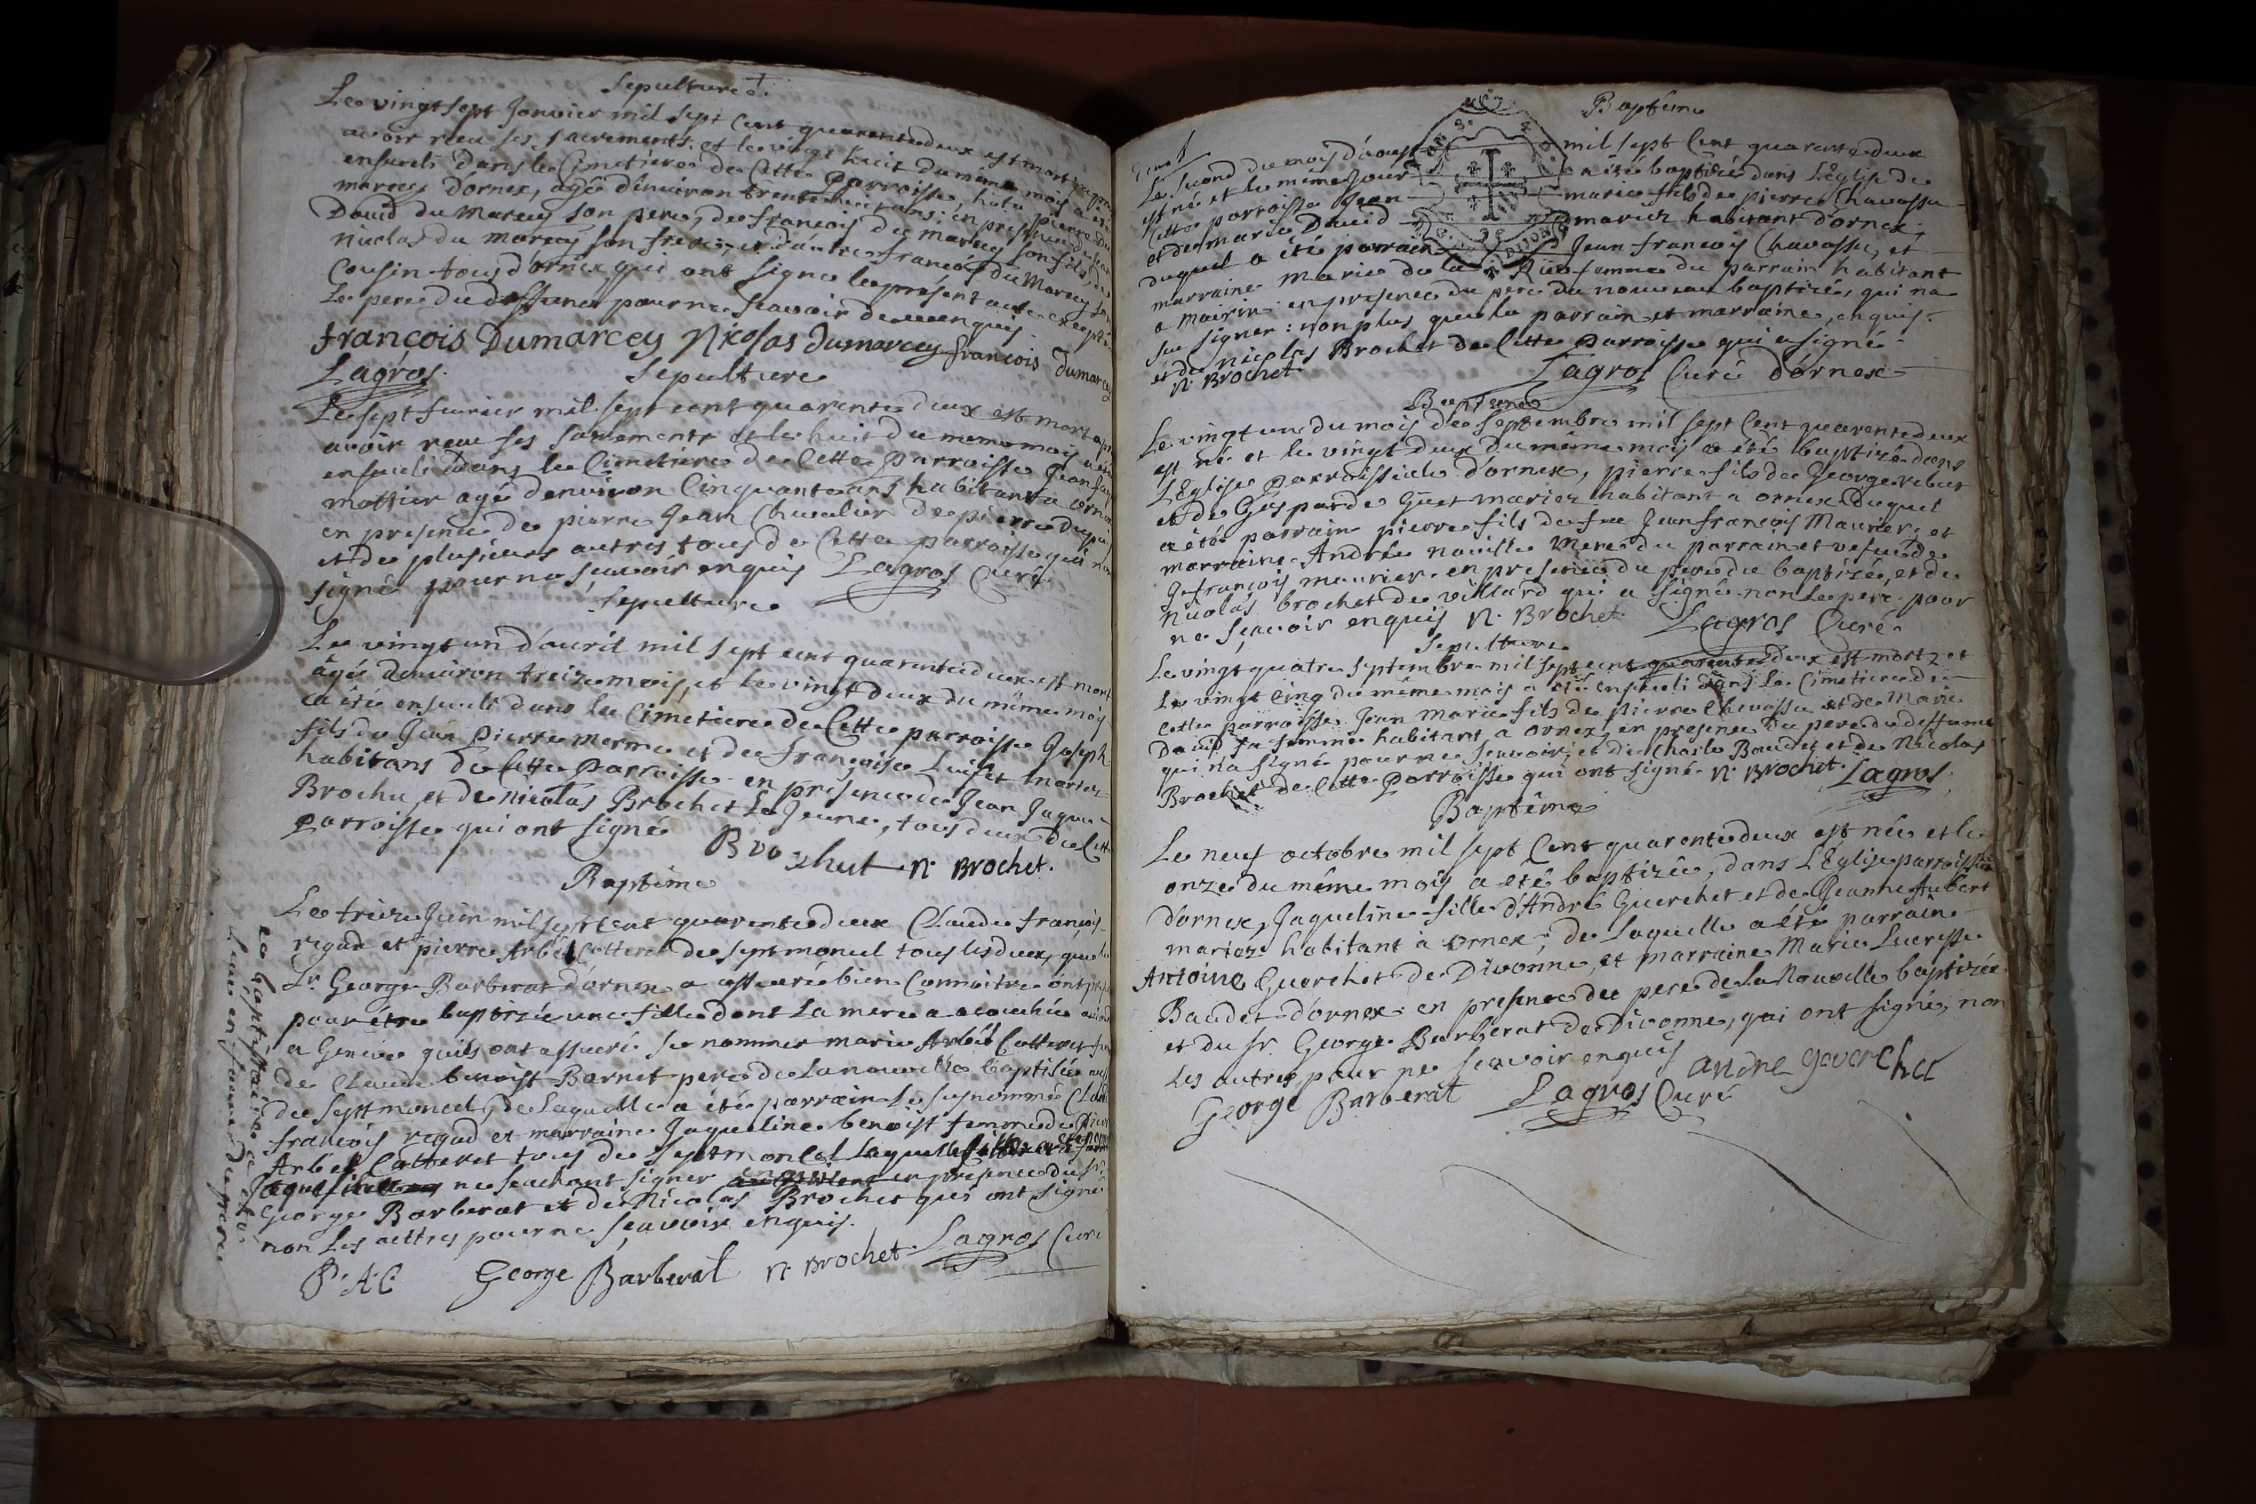 Sepulture
Le vingt sept Janvier mil sept cent quarente deux est mort
avoir receu ses sacrements. et le vingt huit du meme mois a été
enseveli dans le Cimetiere de Cette parroisse, pierre Du
marcey d'ornex, agé d'environ trente ans: en presence de
David du Marcey son pere, de françois du marcey son fils,
nicolas du marcey son frere, et d'autre françois du Marcey son
Cousin tous d'ornex qui ont signé le présent acte excepté
Le pere du deffunct pour ne sçavoir de ce enquis.
françois Dumarcey Nicolas dumarcey françois dumarcey
Lagros.
Sepulture
Le sept fevrier mil sept cent quarente deux est mort apr
avoir receu ses sacrements et le huit du meme mois a été
enseveli dans le Cimetiere de Cette parroisse Jean
mottier agé denviron Cinquante ans habitant a
en presence de pierre Jean Chevalier de pierre
et de plusieurs autres tous de Cette parroisse qui n'ont
signé pour ne sçavoir enquis Lagros Curé
Sepulture
Le vingt un d'avril mil sept cent quarente deux est mort
âgé denviron treize mois, et le vingt deux du même mois
a été enseveli dans le Cimetiere de Cette parroisse Joseph
fils de Jean Pierre merme et de françoise mariez
habitans de Cette Parroisse. en présence de Jean Jaque
Brochu, et de nicolas Brochet Le Jeune, tous deux de Cette
parroisse qui ont signé
Brochut N. Brochet.
Baptême
Le treize Juin mil sept cent quarente deux Claude françois
regad et pierre Arbel Cotteret de septmoncel tous les deux, que le
Sr. George Barberat d'ornex a assuré bien Connoitre ont
pour etre baptizée une fille dont La mere a accouchée
a Geneve quils ont assuré se nommer marie Arbel Cotteret
de Claude benoist Barnet pere de La nouvelle baptisée
de Septmoncel, de Laquelle a été parrain Le susnommé Claude
françois regad et marraine Jaqueline benoist femme de Pierre
Arbel Cotteret tous de Septmoncel Laquelle
ne sçachant signer enquis en presence du Sr.
George Barberat et de Nicolas Brochet qui ont signé
non Les autres pour ne sçavoir enquis.
P. A. C. George Barberat N. Brochet Lagros Curé
Baptême
Le second du mois d'aoust mil sept Cent quarente deux
est né et le même Jour a été baptizé dans L'Eglise de
Cette parroisse Jean marie fils de pierre Chavassu
et de marie David mariez habitant d'ornex,
duquel a été parrain Jean françois Chavassu, et
marraine marie de la Rüe femme du parrain habitant
a Mairin: en presence du pere du nouveau baptizé, qui na
sçu signer: non plus que le parrain et marraine, enquis.
et de nicolas Brochet de Cette parroisse qui a signé.
N. Brochet. Lagros Curé d'ornex
Baptême
Le vingt un du mois de Septembre mil sept Cent quarente deux
est né et le vingt deux du même mois a été baptizé dans
L'Eglise parroissiale d'ornex, pierre fils de George rebut
et de Gasparde Guet mariez habitant a ornex. duquel
a été parrain pierre fils de feu Jean françois Maurier, et
marraine Andrée nouille Mere du parrain et vefue de
J. françois maurier. en presence du pere du baptizé, et de
nicolas brochet de villard qui a signé non Le pere pour
ne sçavoir enquis N. Brochet. Lagros Curé
Sepulture
Le vingt quatre septembre mil sept cent quarente deux est mort, et
Le vingt cinq du même mois a été enseveli dans Le Cimetiere de
Cette parroisse Jean Marie fils de pierre Chevassu et de Marie
David sa femme habitant a ornex, en presence du pere du deffunct
qui n'a signé pour ne sçavoir, et de charle Baudet et de Nicolas
Brochet de Cette Parroisse qui ont signé. N. Brochet. Lagros.
Baptême
Le neuf octobre mil sept Cent quarente deux est née et le
onze du même mois a été baptizée, dans L'Eglise parroissiale
d'ornex, Jaqueline fille d'André Guerchet et de Jeanne Aubert
mariez habitant à ornex; de Laquelle a été parrain
Antoine Guerchet de Divonne, et marraine Marie Lucresse
Baudet d'ornex: en presence du pere de La Nouvelle baptizée
et du Sr. George Barberat de Divonne, qui ont signé, non
Les autres pour ne sçavoir enquis andre Guerchet
George Barberat Lagros Curé